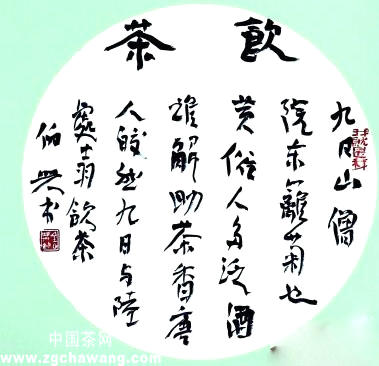 飲茶
九日山僧
院东籬菊也
黄俗人多泛酒
誰解助茶香唐
人皎然九日与陸
處士羽飲茶
伯兴书
中国茶网
www.zgchawang.com